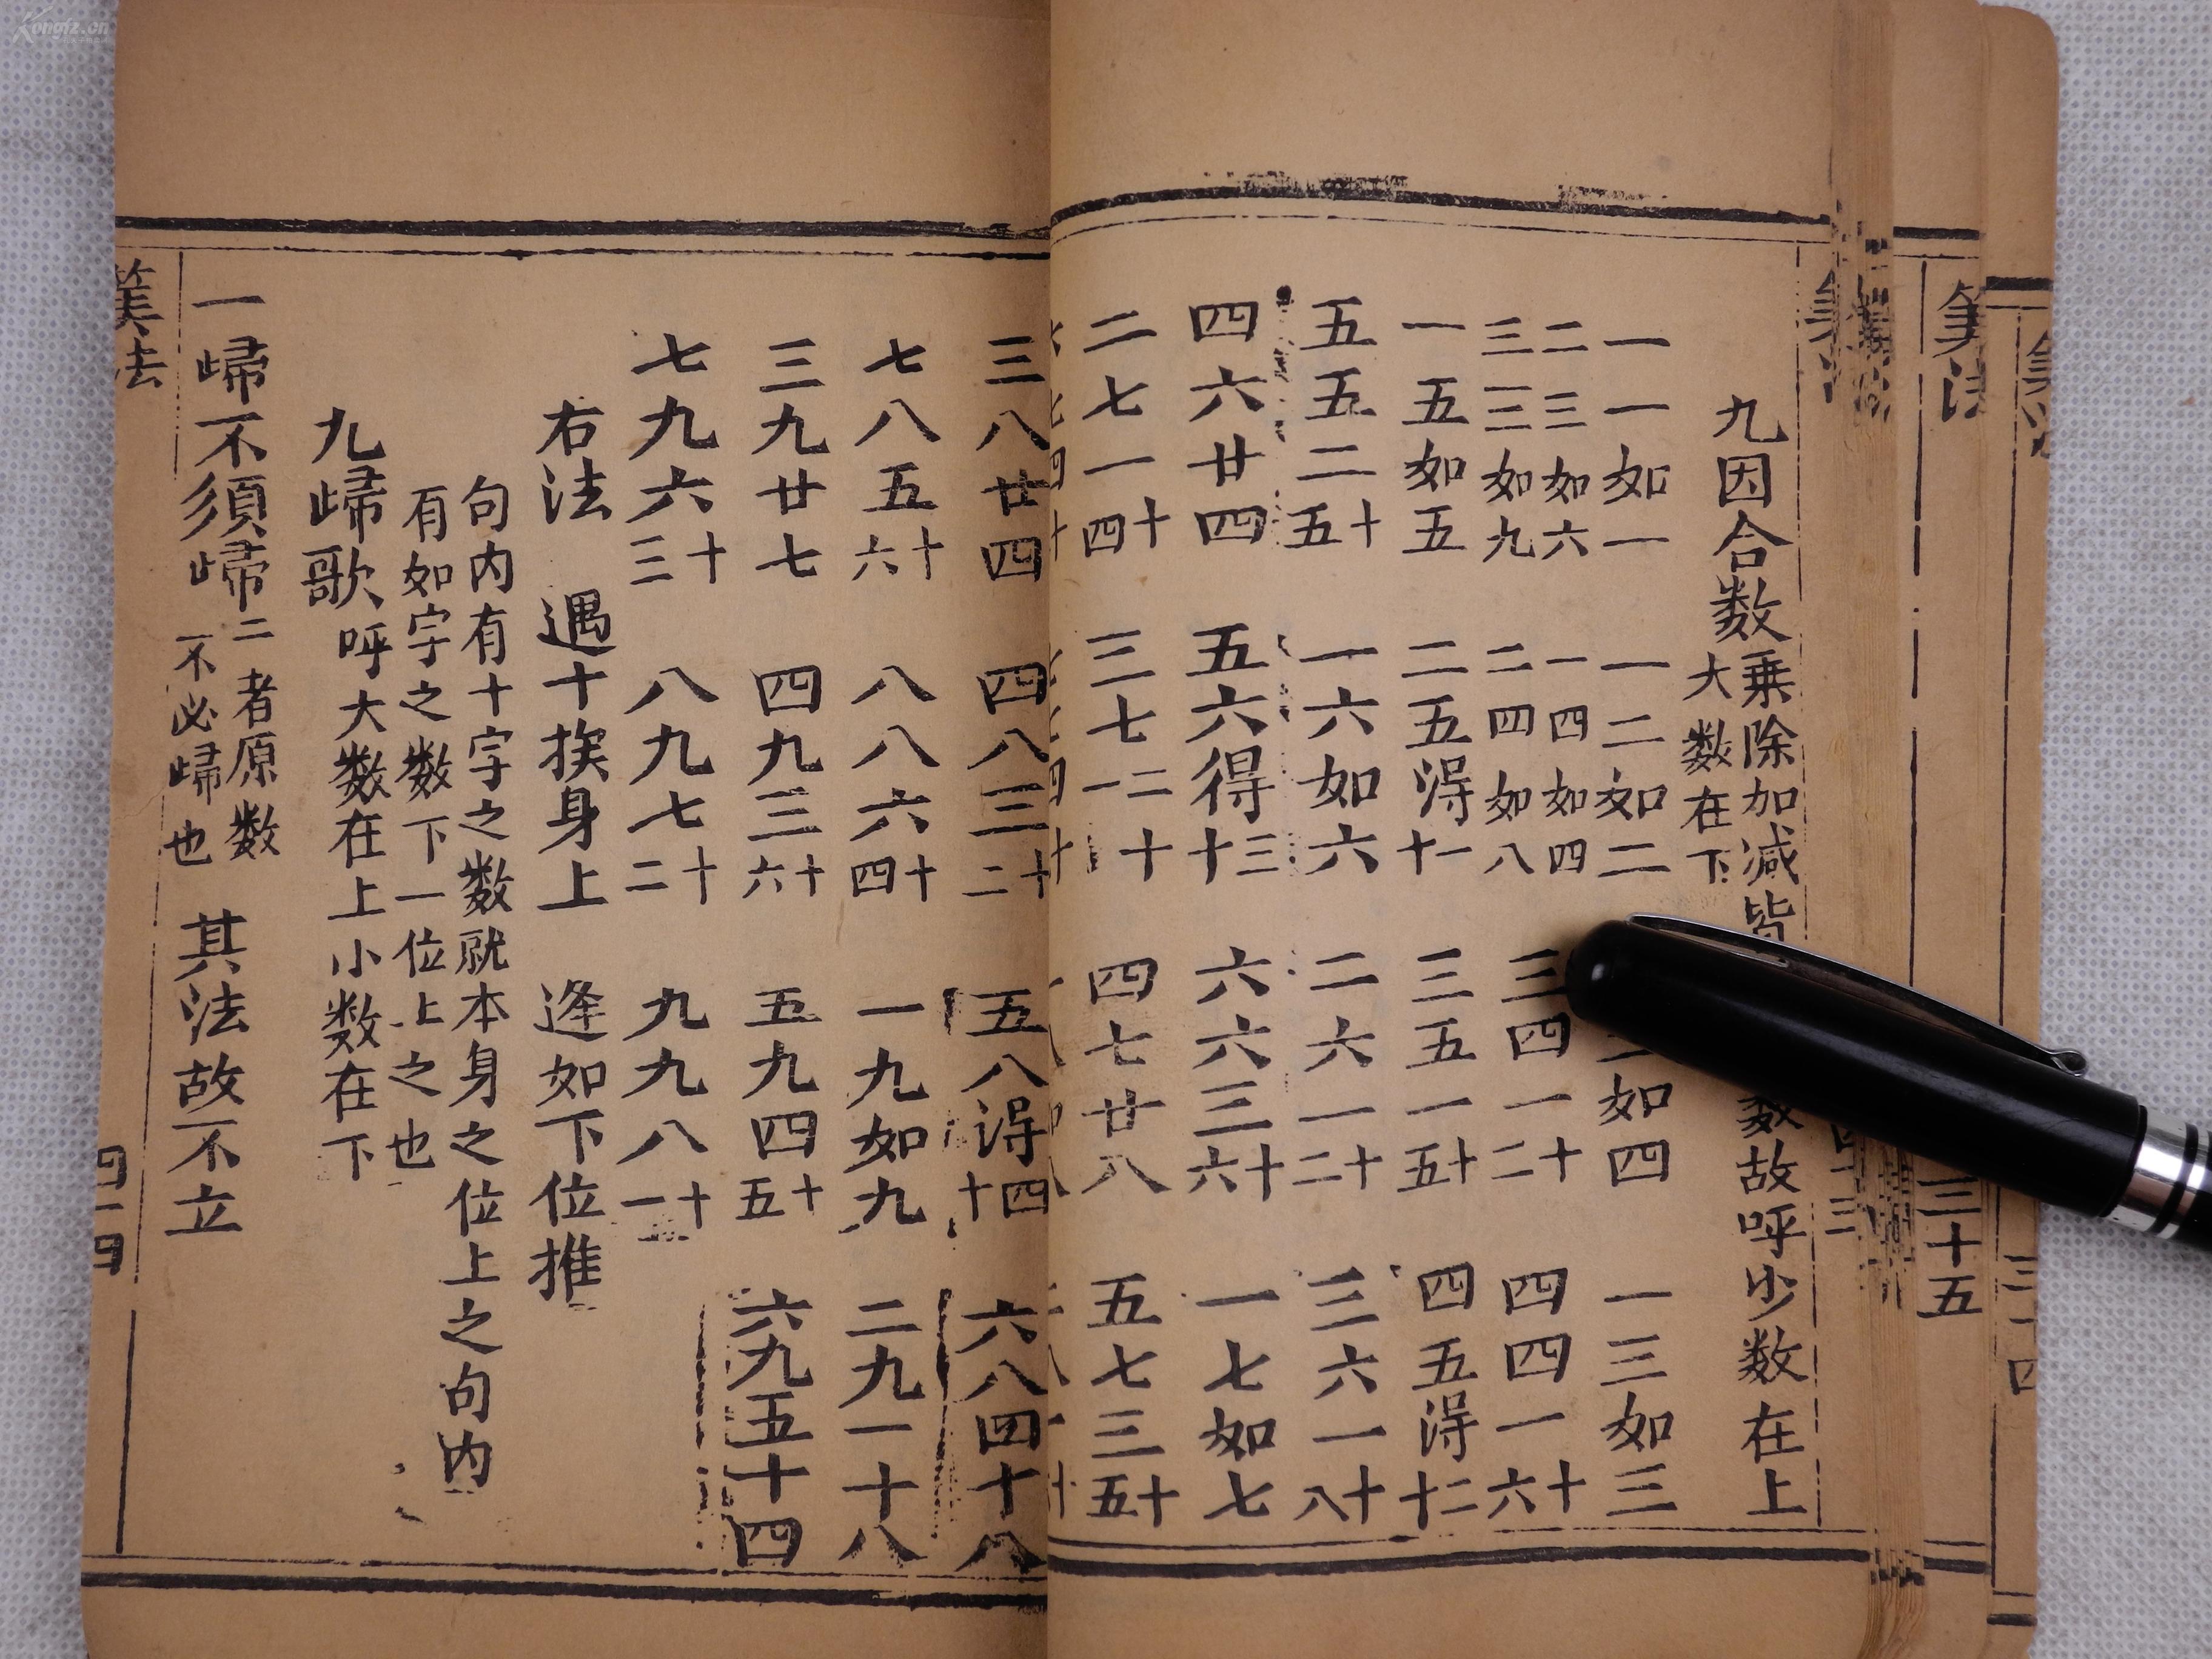 九因合数
乗除加减皆
数故呼少数在上
大数在下
一一如一 一二如二 如四 一三如三
二三如六 一四如四
三三如九 二四如八 三四一十二 四四一十六
一五如五 二五得一十 三五一十五 四五得二十
五五二十五 一六如六 二六一十二 三六一十八
四六廿四 五六得三十 六六三十六 一七如七
二七一十四 三七二十一 四七廿八 五七三十五
三八廿四 四八三十二 五八得四十 六八四十八
七八五十六 八八六十四 一九如九 二九一十八
三九廿七 四九三十六 五九四十五 六九五十四
七九六十三 八九七十二 九九八十一
右法 遇十挨身上 逢如下位推
句内有十字之数就本身之位上之句内
有如字之数下一位上之也
九歸歌呼大数在上小数在下
一歸不須歸二者原数
不必歸也 其法故不立
筭法
四十四
筭法
三十五
Kongfz.cn